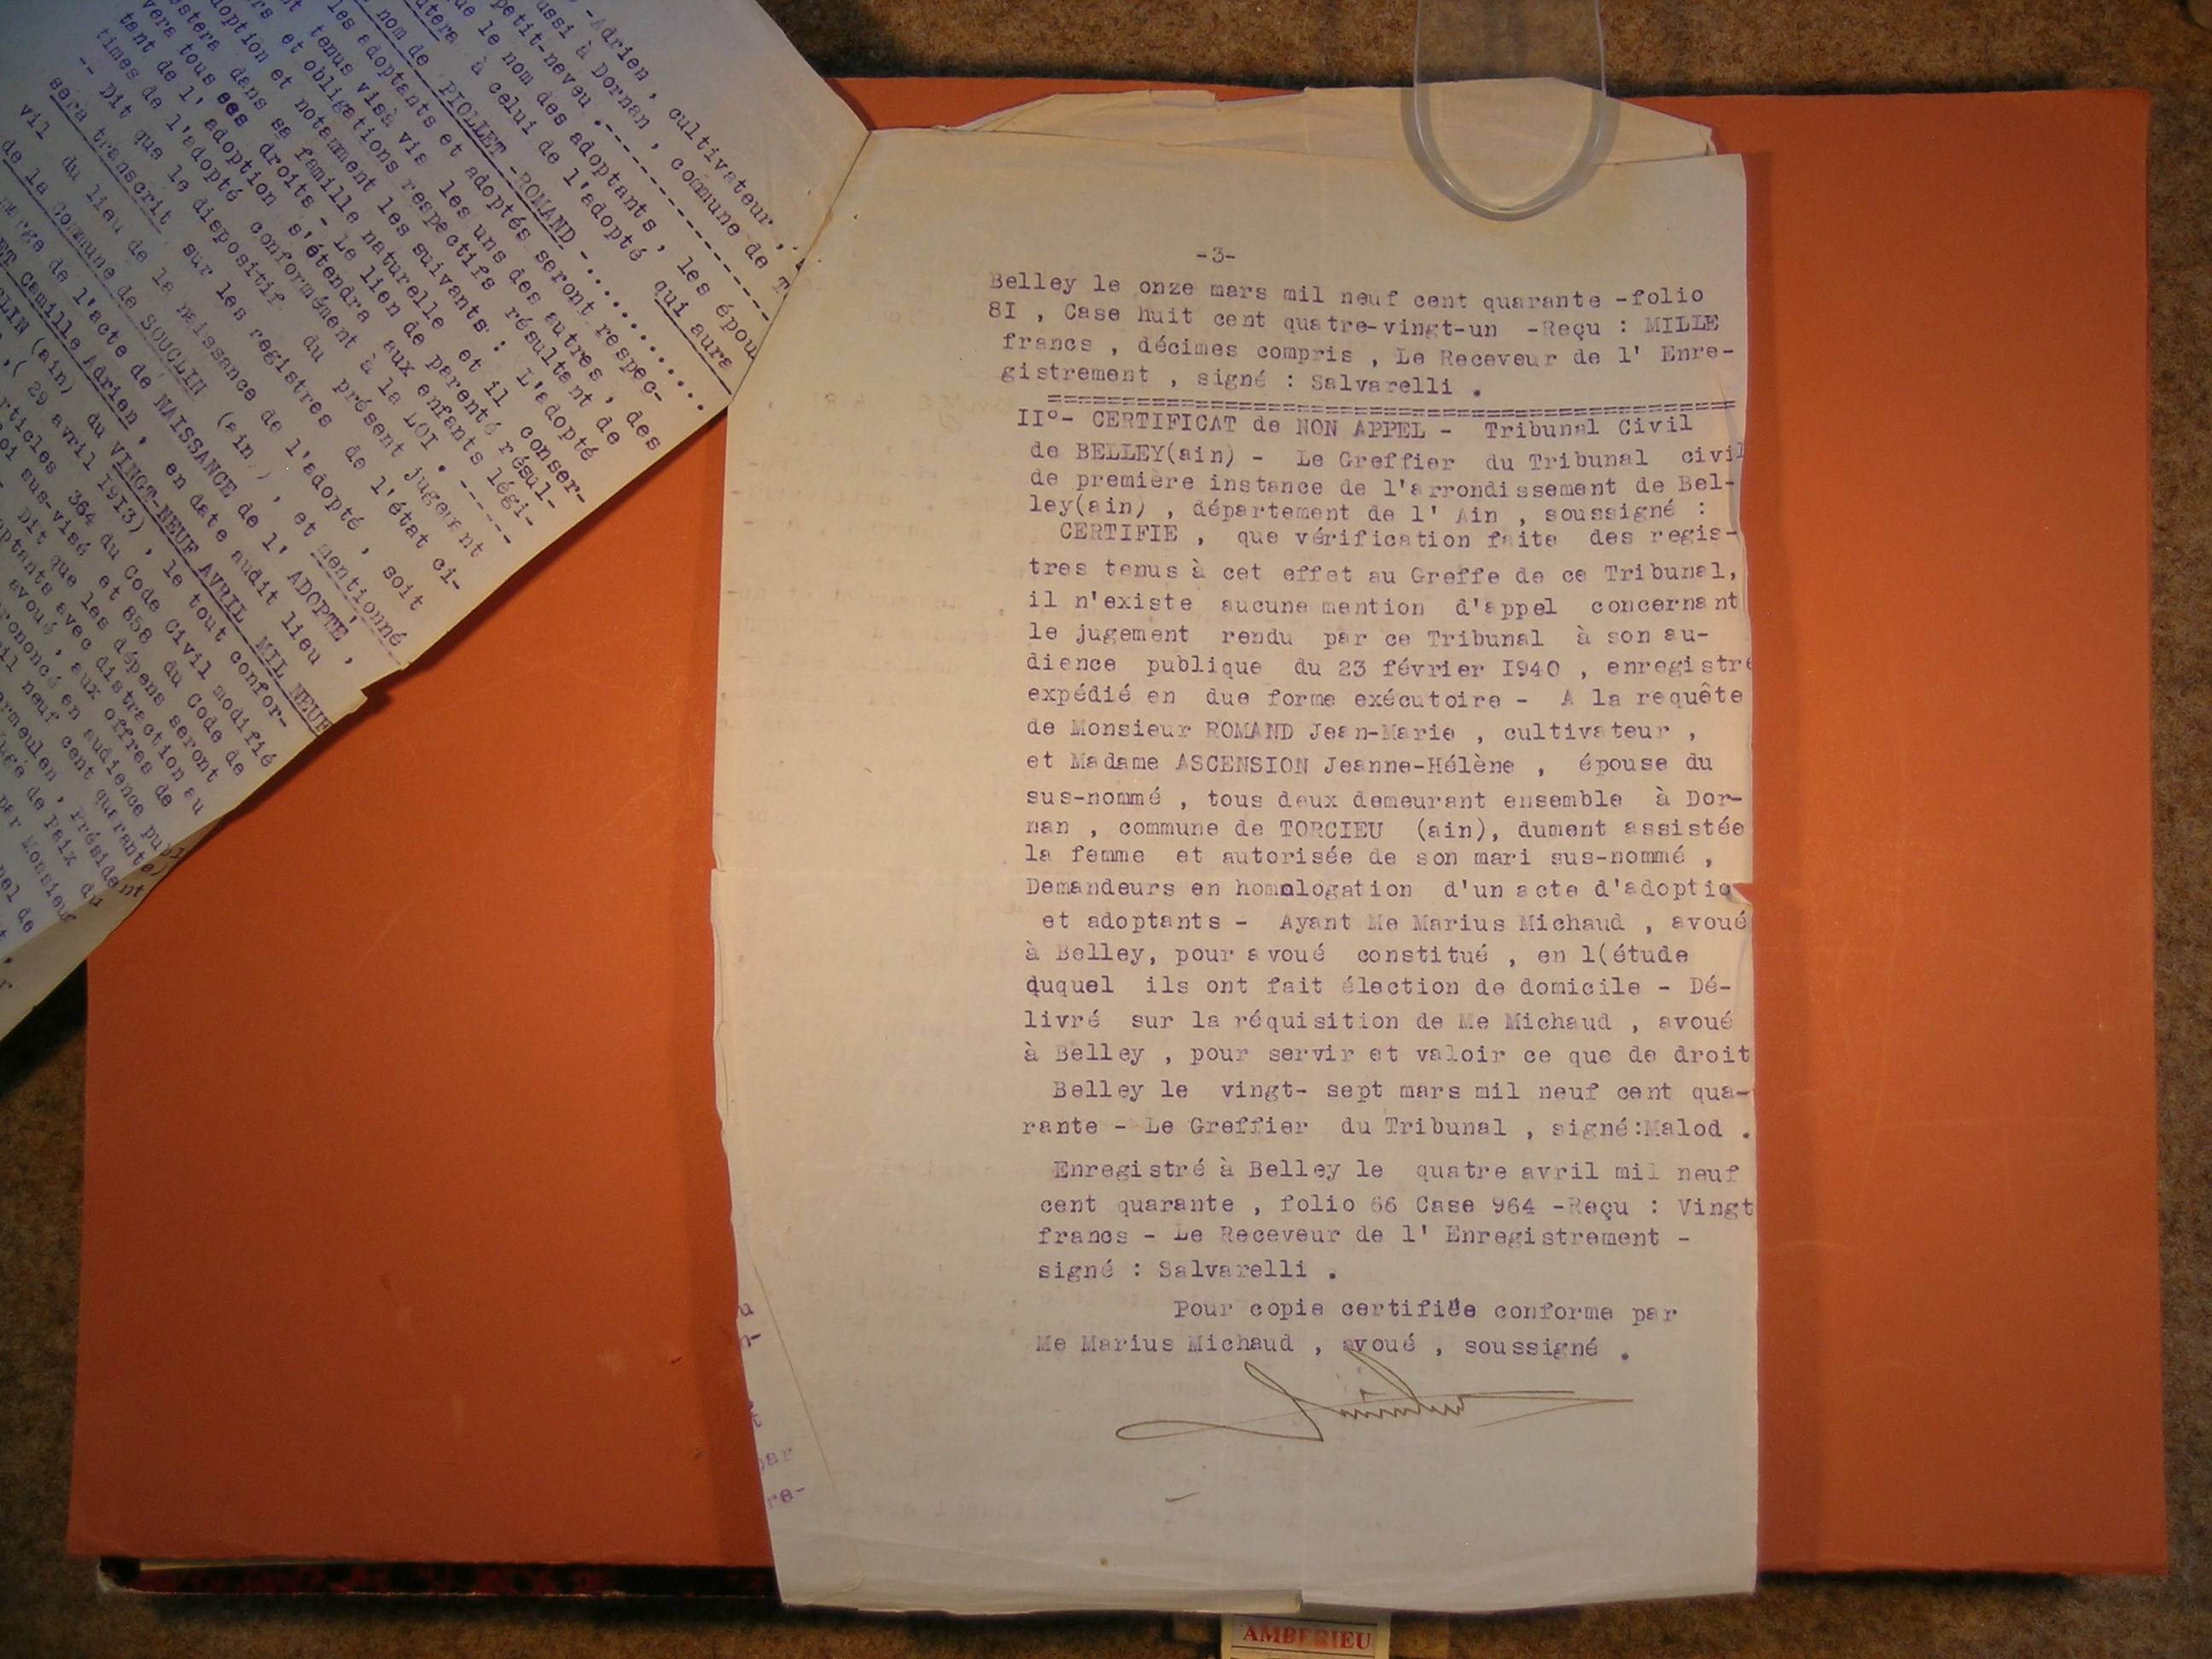 -Adrien , cultivateur ,
ussi à Dornan , commune de T
petit-neveu .
ue le nom des adoptants , les épou
utera à celui de l'adopté qui aura
nom de PIOLLET -ROMAND -
les adoptants et adoptés seront respec-
t tenus visà vis les uns des autres , des
rs et obligations respectifs résultant de
doption et notamment les suivants: L'adopté
estera dans sa famille naturelle et il conser-
vera tous ses droits - Le lien de parenté résul-
tant de l'adoption s'étendra aux enfants légi-
times de l'adopté conformément à la LOI .
-- Dit que le dispositif du présent jugement
sera transcrit sur les registres de l'état ci-
vil du lieu de la naissance de l'adopté , soit
de la Commune de SOUCLIN (ain) , et mentionné
marge de l'acte de NAISSANCE de l' ADOPTE ,
ET Camille Adrien , en date audit lieu
CLIN (ain) du VINGT-NEUF AVRIL MIL NEUF
,( 29 avril I9I3) , le tout confor-
rticles 364 du Code Civil modifié
oi sus-visé et 858 du Code de
Dit que les dépens seront
optants avec distraction au
avoué , aux offres de
rononcé en audience publ
il neuf cent quarante)
ermeulen , Président
uge de Paix du
par Monsieur
el de
-3-
Belley le onze mars mil neuf cent quarante -folio
8I , Case huit cent quatre-vingt-un -Reçu : MILLE
francs , décimes compris , Le Receveur de l' Enre-
gistrement , signé : Salvarelli .
II°- CERTIFICAT de NON APPEL - Tribunal Civil
de BELLEY(ain) - Le Greffier du Tribunal civil
de première instance de l'arrondissement de Bel-
ley(ain) , département de l' Ain , soussigné :
CERTIFIE , que vérification faite des regis-
tres tenus à cet effet au Greffe de ce Tribunal,
il n'existe aucune mention d'appel concernant
le jugement rendu par ce Tribunal à son au-
dience publique du 23 février I940 , enregistré
expédié en due forme exécutoire - A la requête
de Monsieur ROMAND Jean-Marie , cultivateur ,
et Madame ASCENSION Jeanne-Hélène , épouse du
sus-nommé , tous deux demeurant ensemble à Dor-
nan , commune de TORCIEU (ain), dument assistée
la femme et autorisée de son mari sus-nommé ,
Demandeurs en homologation d'un acte d'adoptio
et adoptants - Ayant Me Marius Michaud , avoué
à Belley, pour avoué constitué , en l(étude
duquel ils ont fait élection de domicile - Dé-
livré sur la réquisition de Me Michaud , avoué
à Belley , pour servir et valoir ce que de droit
Belley le vingt- sept mars mil neuf cent qua-
rante - Le Greffier du Tribunal , signé:Malod .
Enregistré à Belley le quatre avril mil neuf
cent quarante , folio 66 Case 964 -Reçu : Vingt
francs - Le Receveur de l' Enregistrement -
signé : Salvarelli .
Pour copie certifiée conforme par
Me Marius Michaud , avoué , soussigné .
par
re-
AMBERIEU